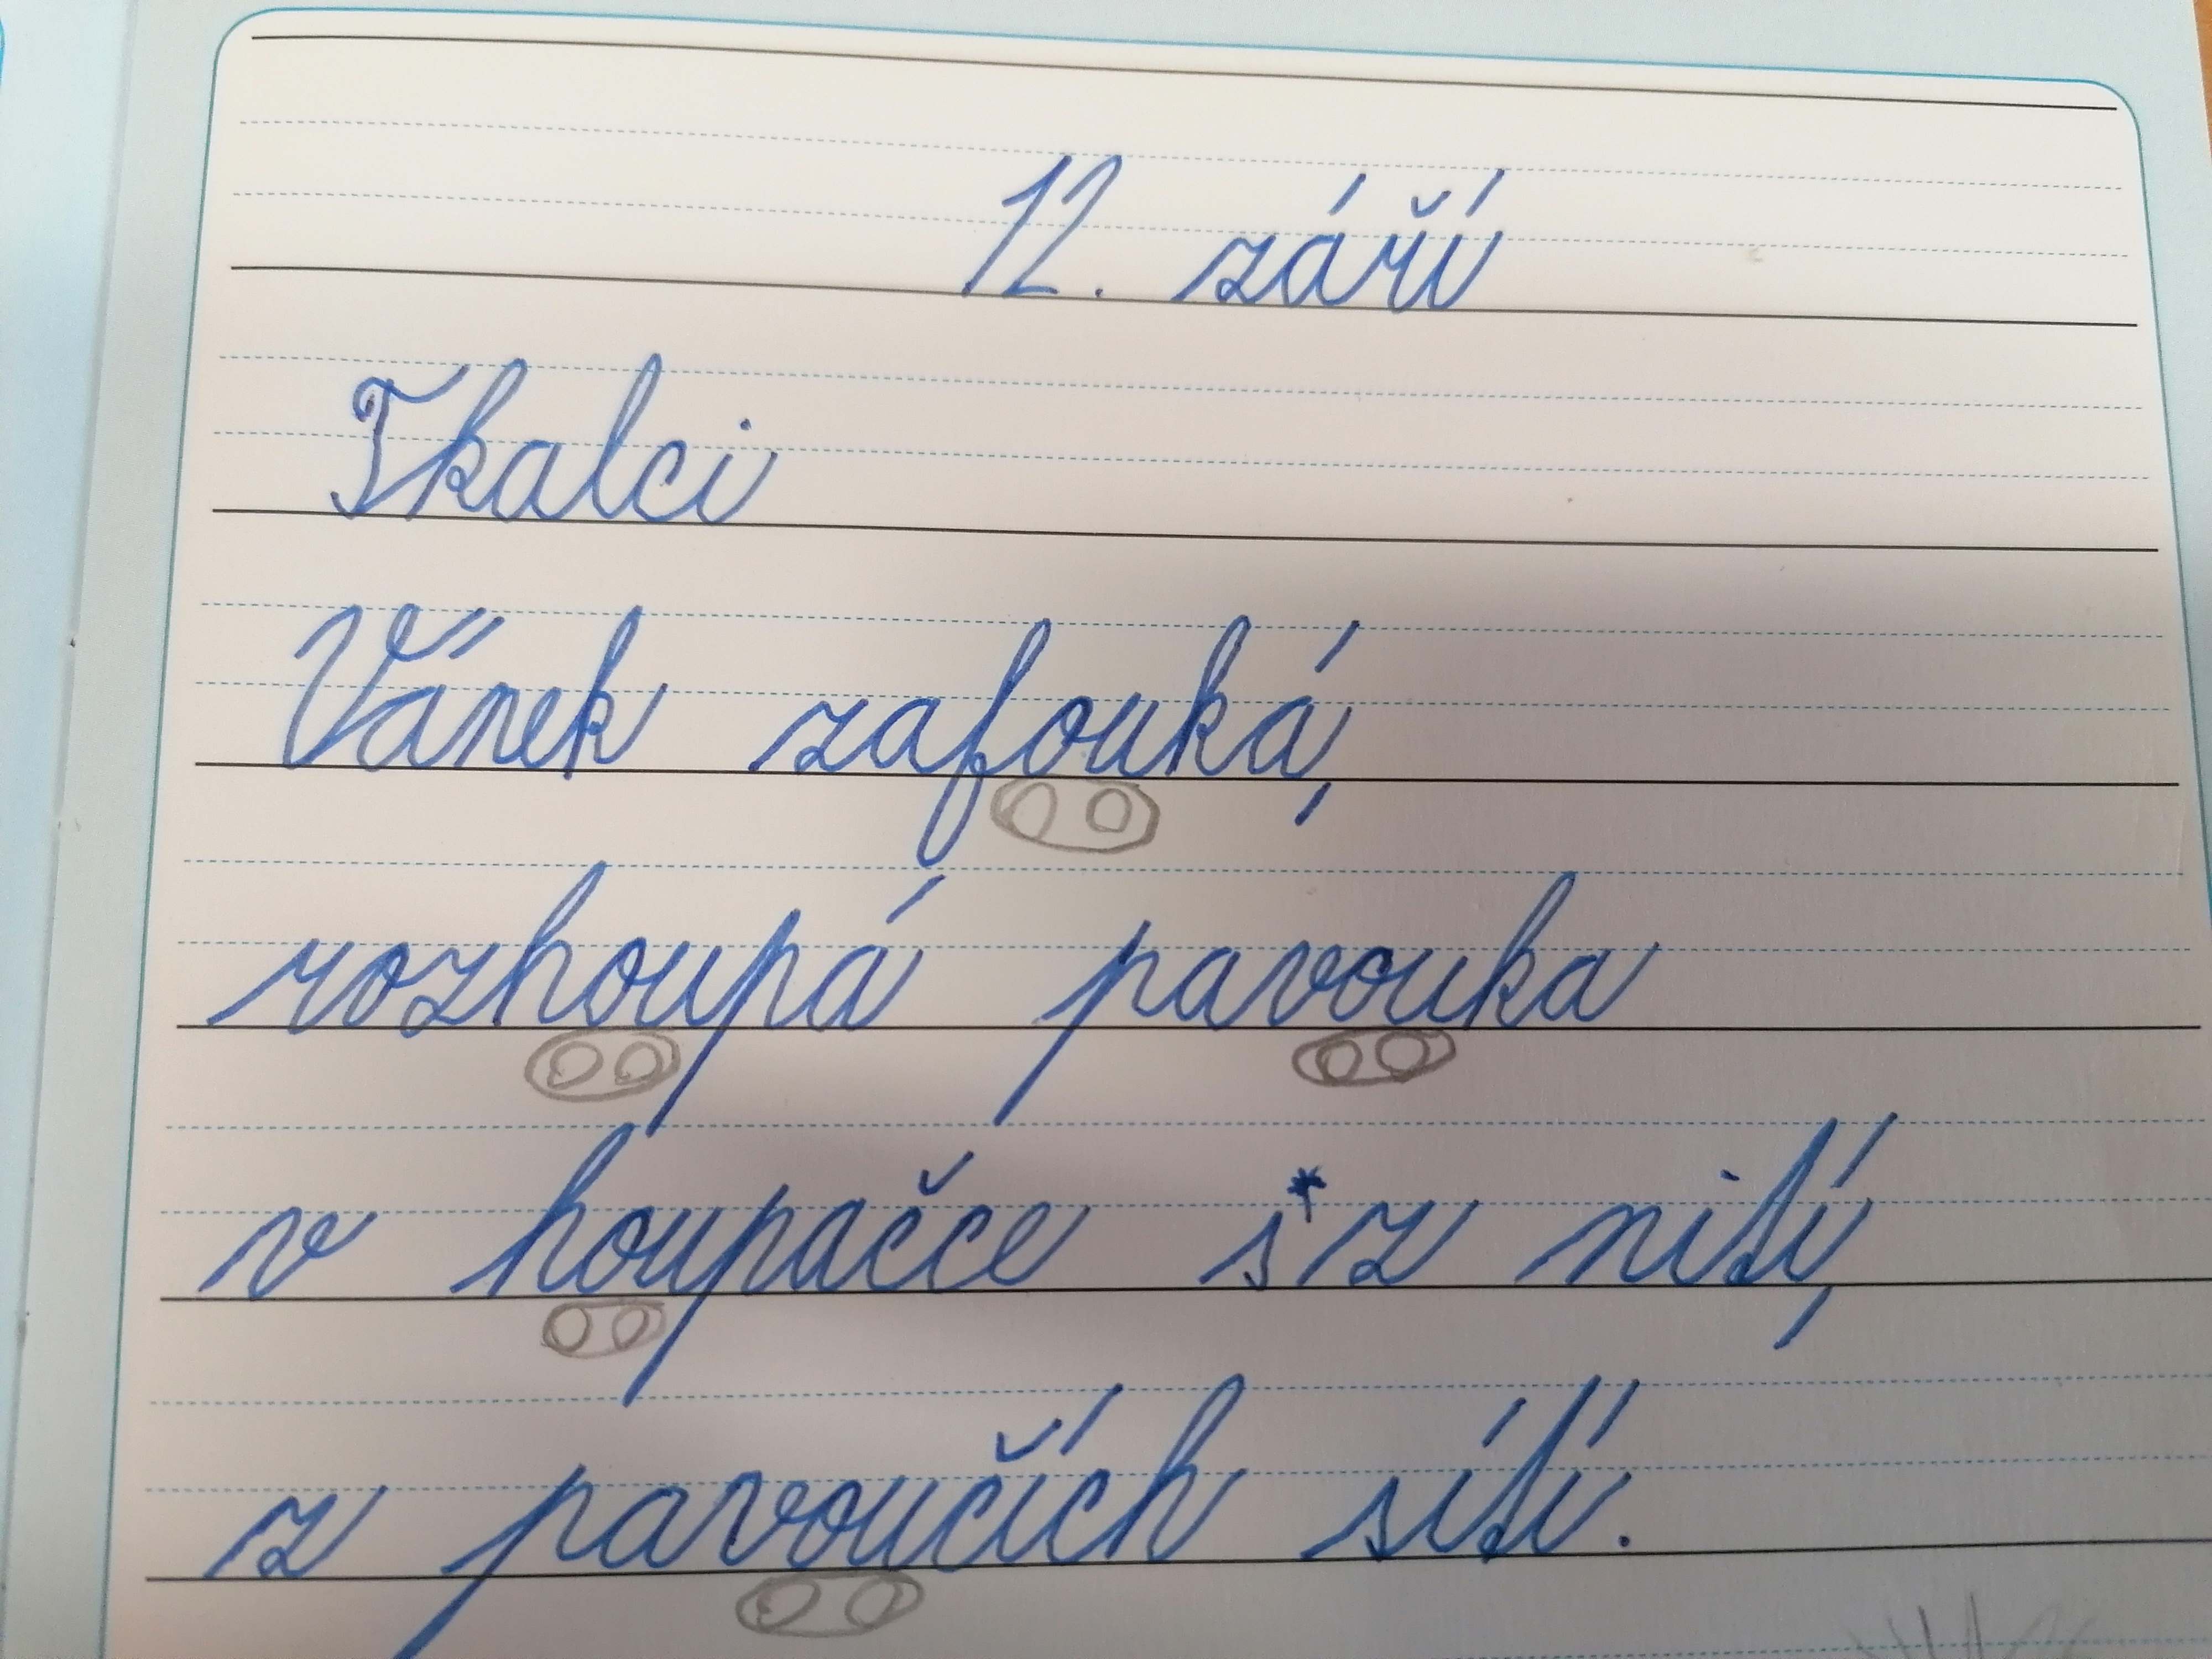 12. září
Tkalci
Vánek zafouká,
rozhoupá pavouka
v houpačce s*z nití,
z pavoučích sítí.